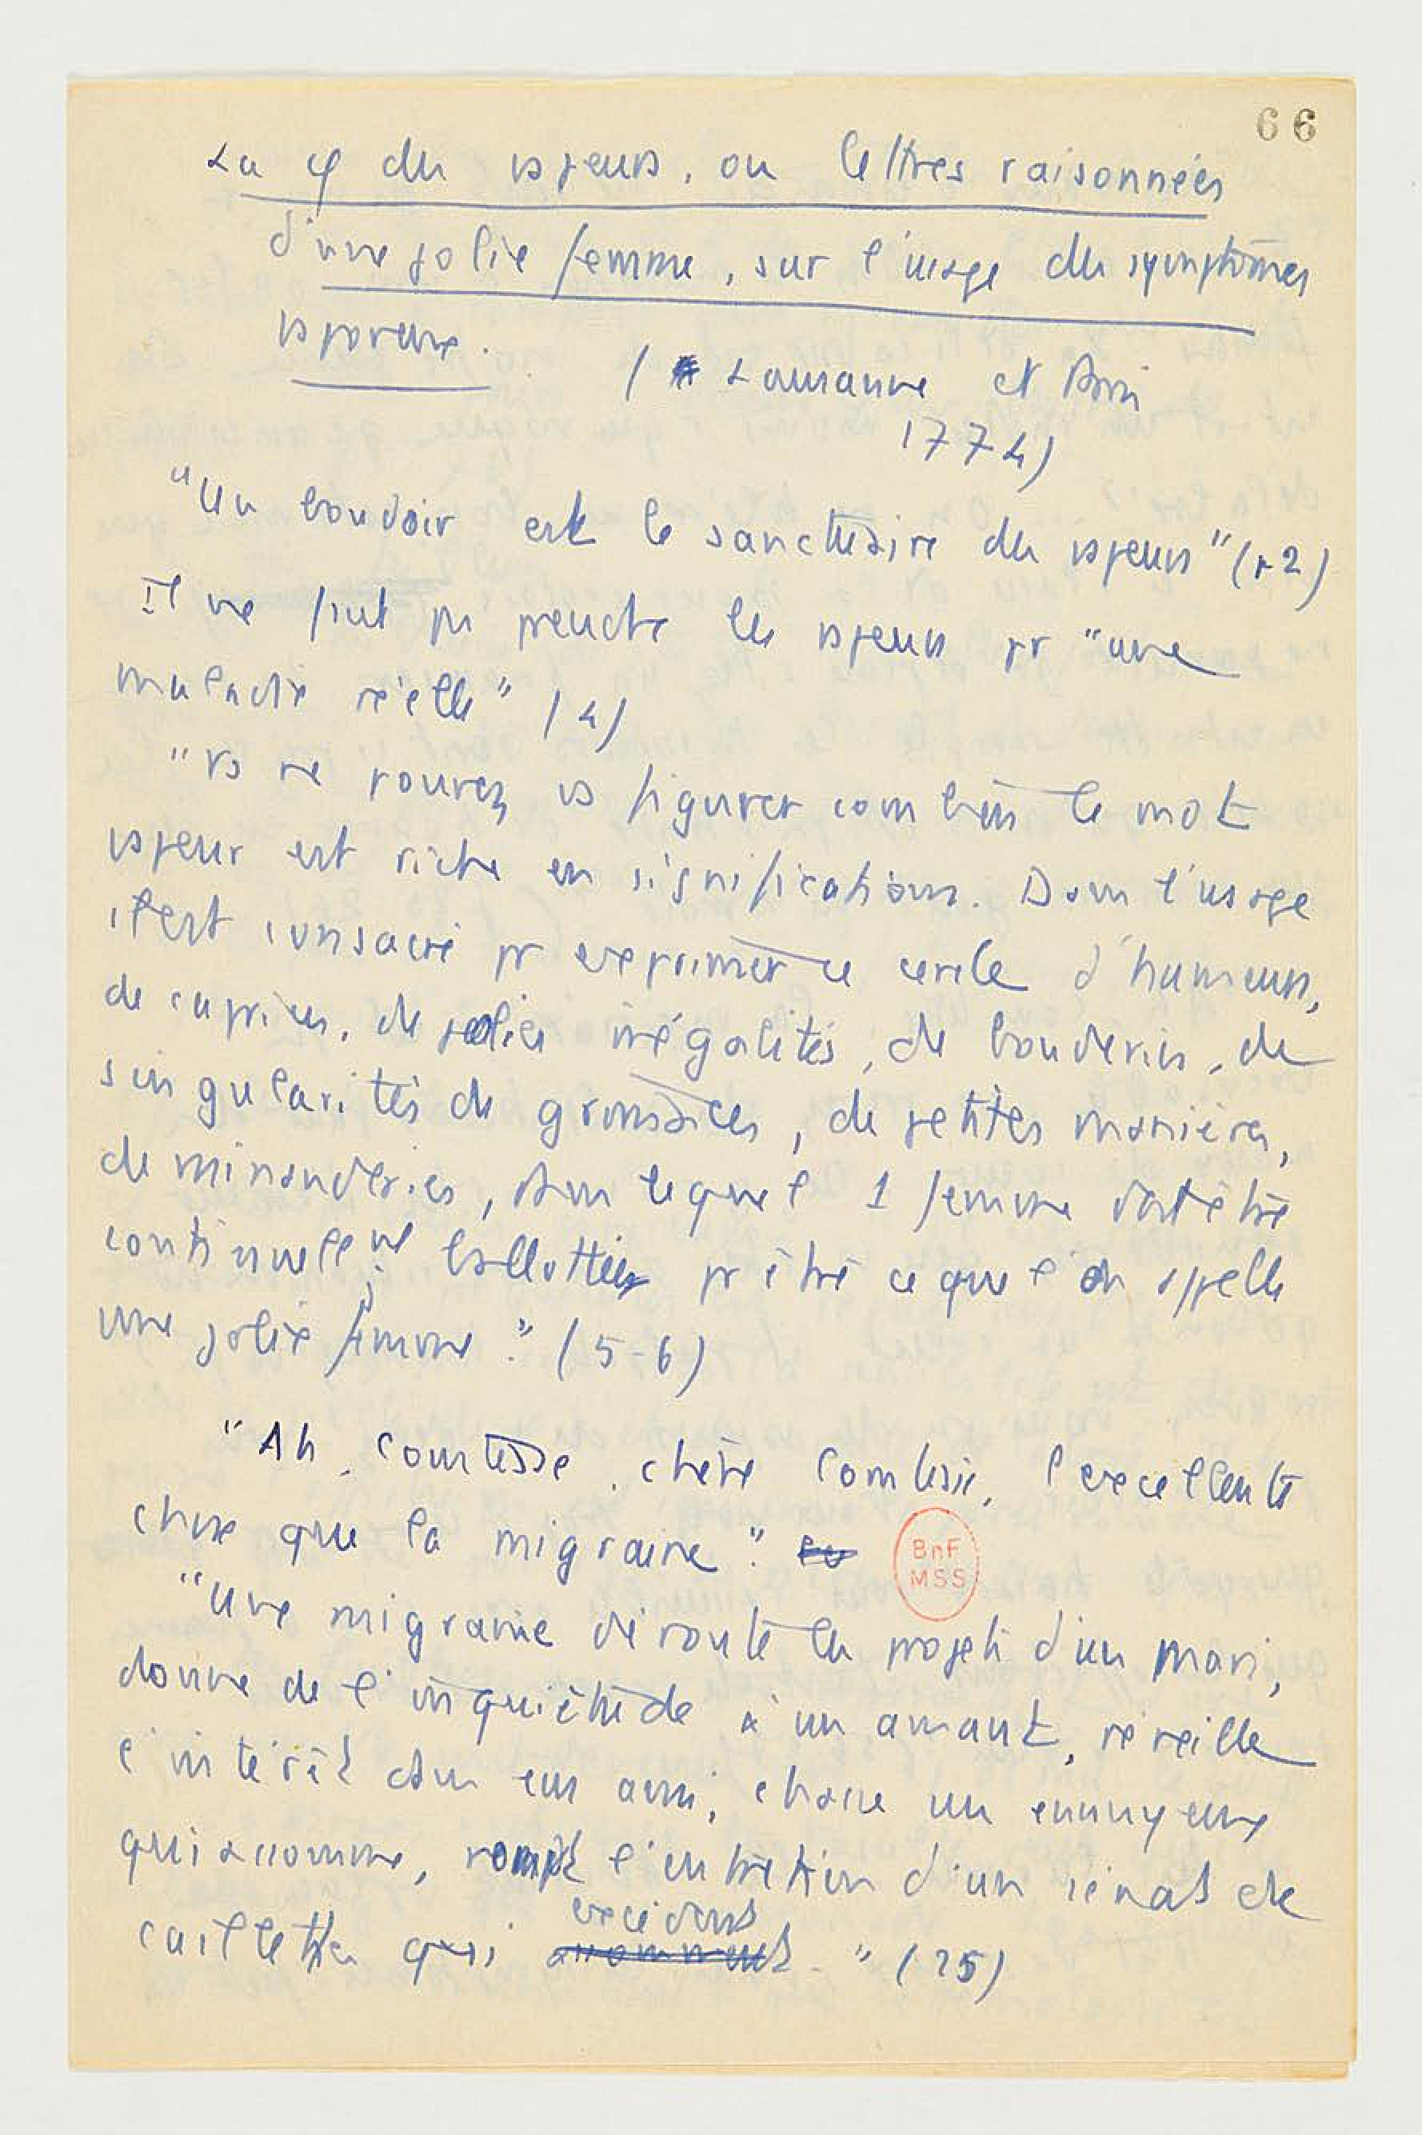 66
La φ des vapeurs, ou lettres raisonnées
d'une jolie femme, sur l'usage des symptômes
vaporeux.
( Lausanne et Paris
1774)
"Un boudoir est le sanctuaire des vapeurs" (p2)
Il ne faut pas prendre les vapeurs pr "une
maladie réelle" (4)
"Vs ne pouvez vs figurer combien le mot
vapeur est riche en significations. Dans l'usage
il est consacré pr exprimer ce cercle d'humeurs,
de caprices, de jolies inégalités, de bouderies, de
singularités de grossières, de petites manières,
de minauderies, dans lequel 1 femme doit être
continuellemt ballottée pr être ce que l'on appelle
une jolie femme." (5-6)
"Ah, comtesse, chère Comtesse, l'excellente
chose que la migraine".
BnF
MSS
"Une migraine déroute les projets d'un mari,
donne de l'inquiétude à un amant, réveille
l'intérêt dans un ami, chasse un ennuyeux
qui assomme, rompt l'entretien d'un sénat de
caillettes qui excèdent
assomment." (25)